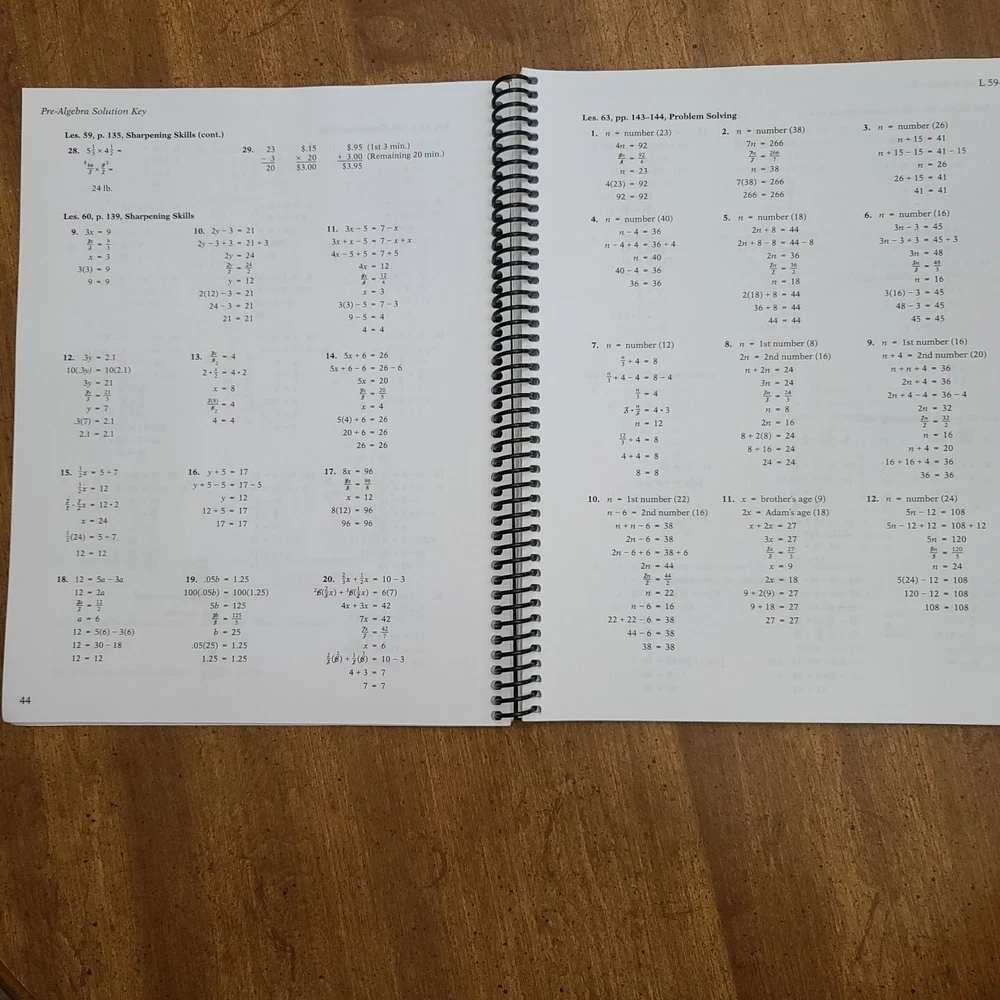 Pre-Algebra Solution Key
Les. 59, p. 135, Sharpening Skills (cont.)
28. 5 1/3 × 4 1/2 =
24 lb.
29. 23 $.15 $.95 (1st 3 min.)
− 3 × 20 + 3.00 (Remaining 20 min.)
20 $3.00 $3.95
Les. 60, p. 139, Sharpening Skills
9. 3x = 9
3x/3 = 9/3
x = 3
3(3) = 9
9 = 9
10. 2y − 3 = 21
2y − 3 + 3 = 21 + 3
2y = 24
2y/2 = 24/2
y = 12
2(12) − 3 = 21
24 − 3 = 21
21 = 21
11. 3x − 5 = 7 − x
3x + x − 5 = 7 − x + x
4x − 5 + 5 = 7 + 5
4x = 12
4x/4 = 12/4
x = 3
3(3) − 5 = 7 − 3
9 − 5 = 4
4 = 4
12. .3y = 2.1
10(.3y) = 10(2.1)
3y = 21
3y/3 = 21/3
y = 7
.3(7) = 2.1
2.1 = 2.1
13. = 4
2 · x/2 = 4 · 2
x = 8
= 4
4 = 4
14. 5x + 6 = 26
5x + 6 − 6 = 26 − 6
5x = 20
5x/5 = 20/5
x = 4
5(4) + 6 = 26
20 + 6 = 26
26 = 26
15. 1/2x = 5 + 7
1/2x = 12
2/1 · 1/2x = 12 · 2
x = 24
1/2(24) = 5 + 7
12 = 12
16. y + 5 = 17
y + 5 − 5 = 17 − 5
y = 12
12 + 5 = 17
17 = 17
17. 8x = 96
8x/8 = 96/8
x = 12
8(12) = 96
96 = 96
18. 12 = 5a − 3a
12 = 2a
2a/2 = 12/2
a = 6
12 = 5(6) − 3(6)
12 = 30 − 18
12 = 12
19. .05b = 1.25
100(.05b) = 100(1.25)
5b = 125
5b/5 = 125/5
b = 25
.05(25) = 1.25
1.25 = 1.25
20. 2/3x + 1/2x = 10 − 3
6(2/3x) + 6(1/2x) = 6(7)
4x + 3x = 42
7x = 42
7x/7 = 42/7
x = 6
2/3(6) + 1/2(6) = 10 − 3
4 + 3 = 7
7 = 7
44
L 59-
Les. 63, pp. 143–144, Problem Solving
1. n = number (23)
4n = 92
4n/4 = 92/4
n = 23
4(23) = 92
92 = 92
2. n = number (38)
7n = 266
7n/7 = 266/7
n = 38
7(38) = 266
266 = 266
3. n = number (26)
n + 15 = 41
n + 15 − 15 = 41 − 15
n = 26
26 + 15 = 41
41 = 41
4. n = number (40)
n − 4 = 36
n − 4 + 4 = 36 + 4
n = 40
40 − 4 = 36
36 = 36
5. n = number (18)
2n + 8 = 44
2n + 8 − 8 = 44 − 8
2n = 36
2n/2 = 36/2
n = 18
2(18) + 8 = 44
36 + 8 = 44
44 = 44
6. n = number (16)
3n − 3 = 45
3n − 3 + 3 = 45 + 3
3n = 48
3n/3 = 48/3
n = 16
3(16) − 3 = 45
48 − 3 = 45
45 = 45
7. n = number (12)
n/3 + 4 = 8
n/3 + 4 − 4 = 8 − 4
n/3 = 4
3 · n/3 = 4 · 3
n = 12
12/3 + 4 = 8
4 + 4 = 8
8 = 8
8. n = 1st number (8)
2n = 2nd number (16)
n + 2n = 24
3n = 24
3n/3 = 24/3
n = 8
2n = 16
8 + 2(8) = 24
8 + 16 = 24
24 = 24
9. n = 1st number (16)
n + 4 = 2nd number (20)
n + n + 4 = 36
2n + 4 = 36
2n + 4 − 4 = 36 − 4
2n = 32
2n/2 = 32/2
n = 16
n + 4 = 20
16 + 16 + 4 = 36
36 = 36
10. n = 1st number (22)
n − 6 = 2nd number (16)
n + n − 6 = 38
2n − 6 = 38
2n − 6 + 6 = 38 + 6
2n = 44
2n/2 = 44/2
n = 22
n − 6 = 16
22 + 22 − 6 = 38
44 − 6 = 38
38 = 38
11. x = brother's age (9)
2x = Adam's age (18)
x + 2x = 27
3x = 27
3x/3 = 27/3
x = 9
2x = 18
9 + 2(9) = 27
9 + 18 = 27
27 = 27
12. n = number (24)
5n − 12 = 108
5n − 12 + 12 = 108 + 12
5n = 120
5n/5 = 120/5
n = 24
5(24) − 12 = 108
120 − 12 = 108
108 = 108